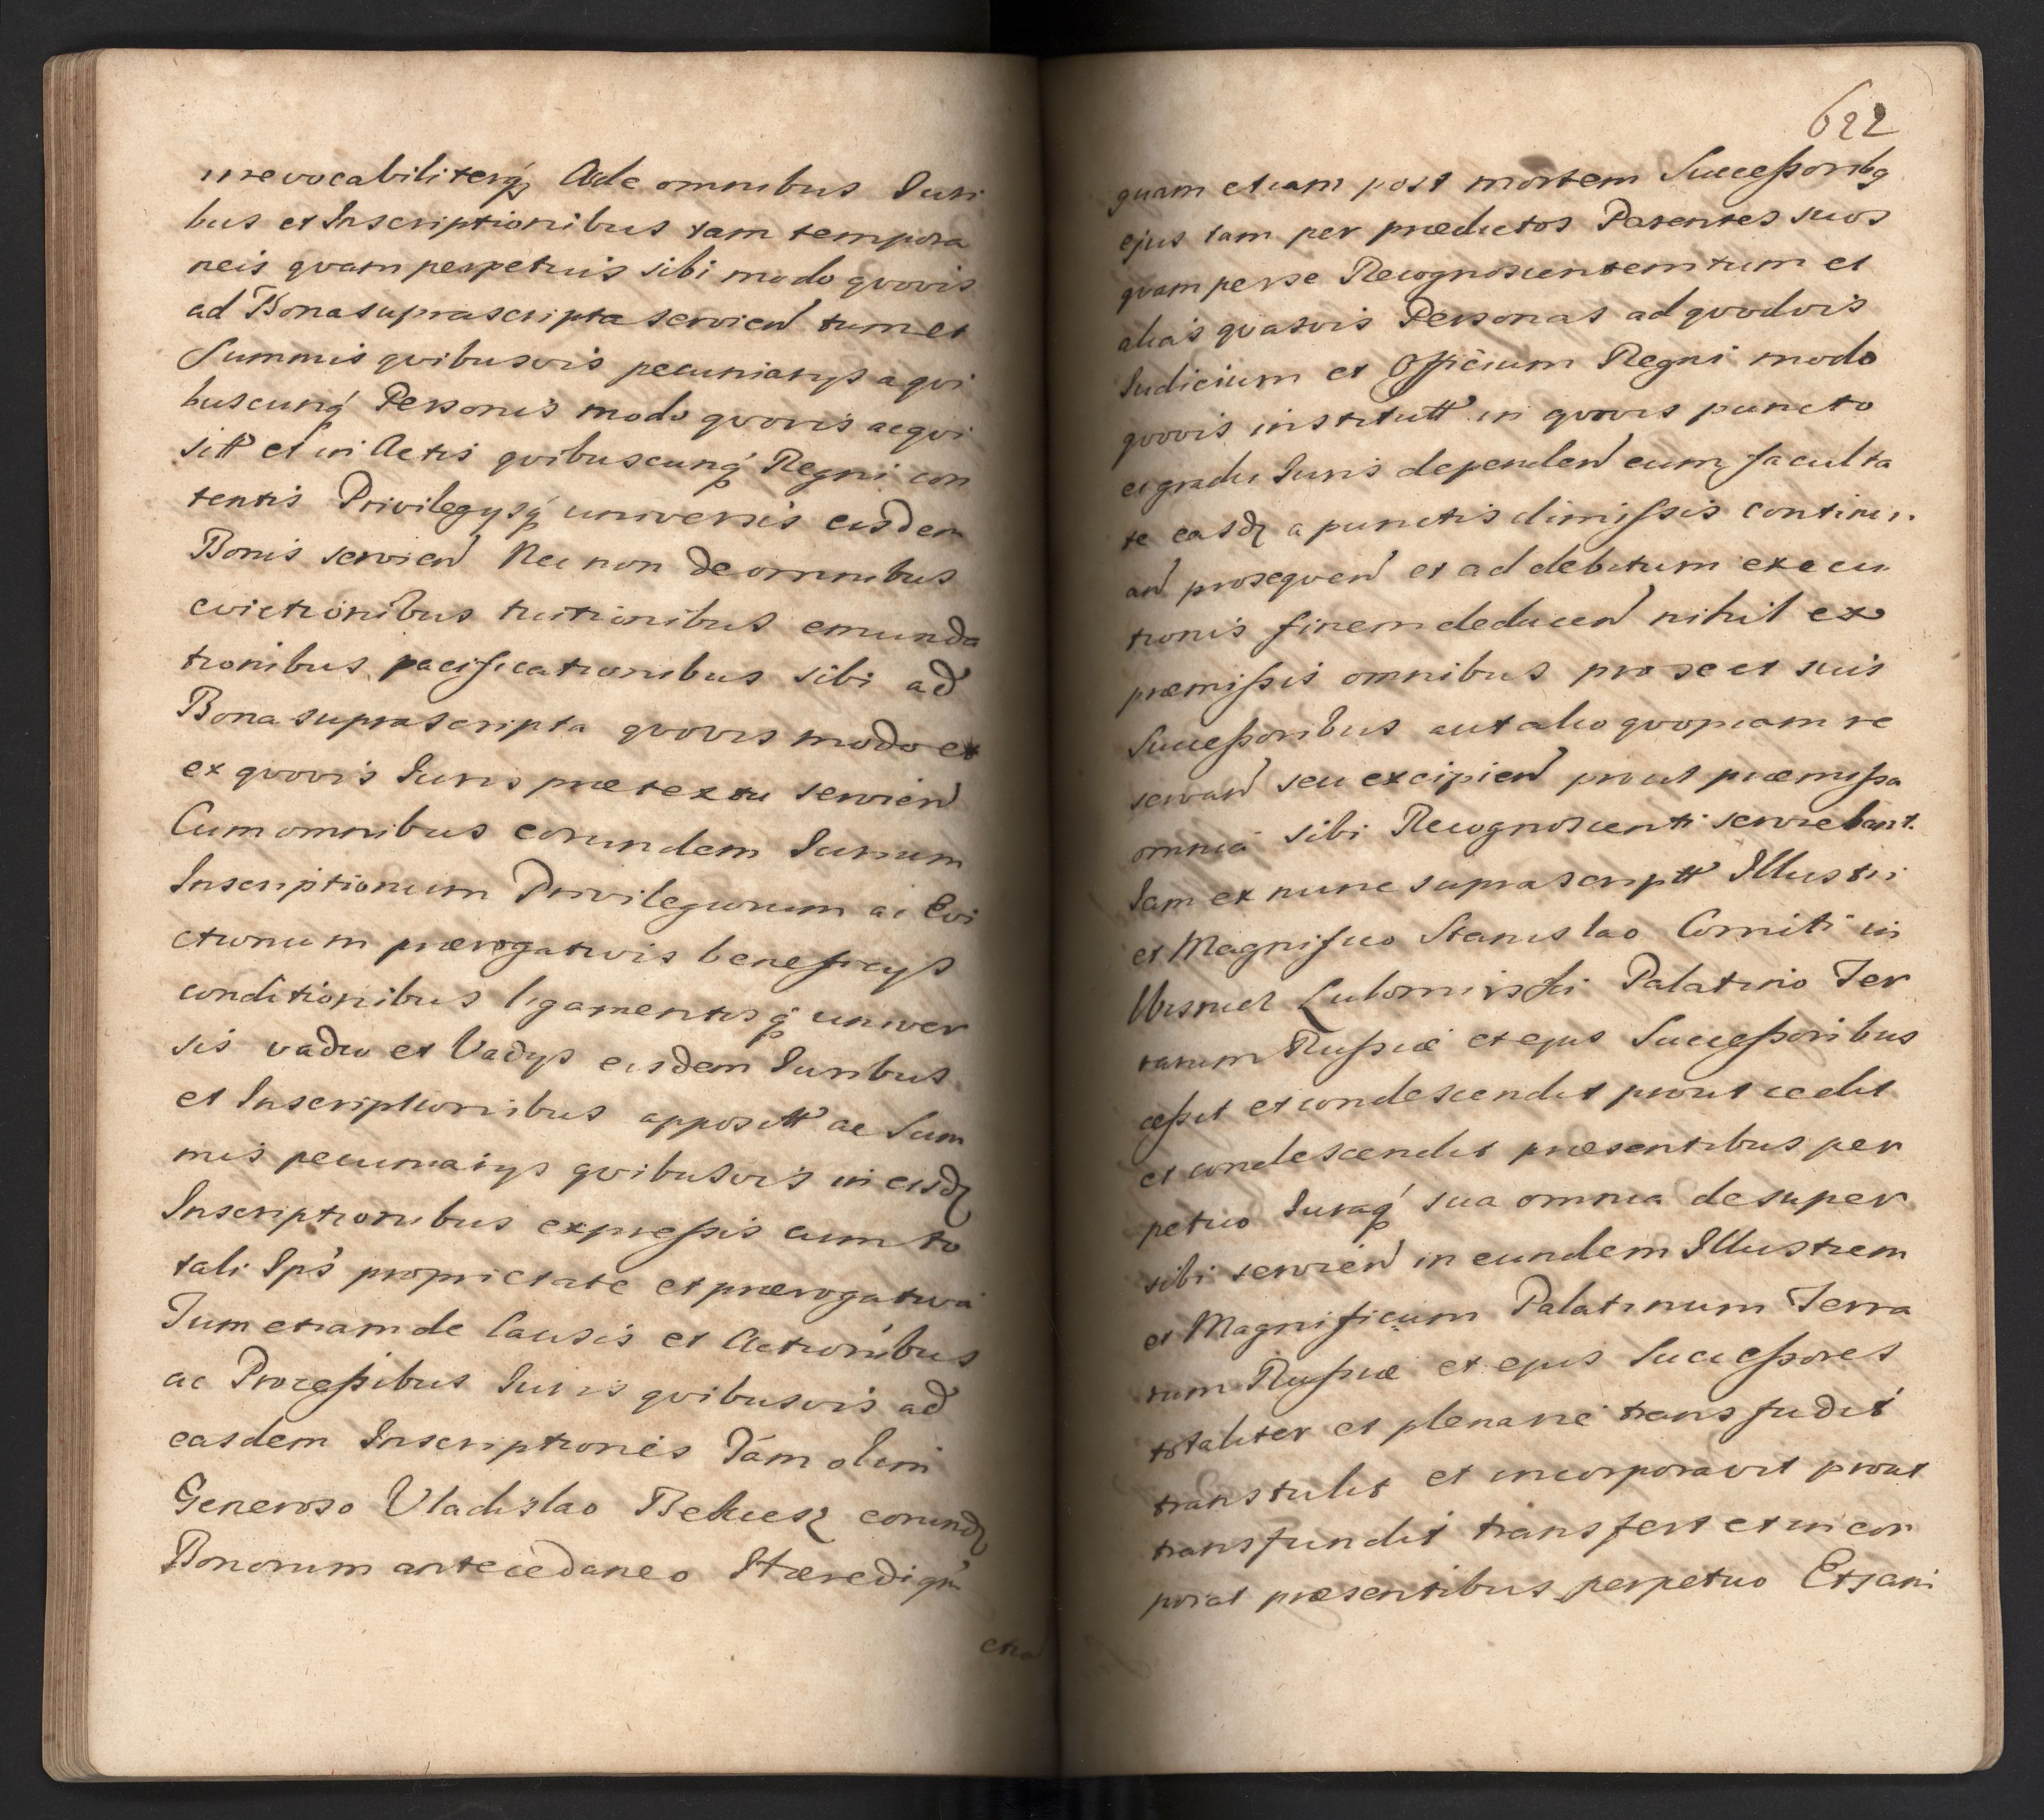 irrevocabiliterq́ Ac de omnibus Juri
bus et Inscriptionibus tam tempora
neis qvam perpetuis sibi modo qvovis
ad Bona suprascripta servień tum et
Summis qvibusvis pecuniarÿs a qvi
buscunq́ Personis modo qvovis acqvi
sitt et in Actis qvibuscunq́ Regni con
tentis Privilegÿsq́ universis eisdem
Bonis servień Nec non de omnibus
evictionibus tuitionibus emunda
tionibus pacificationibus sibi ad
Bona suprascripta qvovis modo et
ex qvovis Juris prætextu servień
Cum omnibus eorundem Jurium
Inscriptionum Privilegiorum ac Evi
ctionum prærogativis beneficÿs
conditionibus ligamentisq́ univer
sis vadio et Vadÿs eisdem Juribus
et Inscriptionibus apposett ac Sum
mis pecuniarÿs qvibusvis in eisdꝫ
Inscriptionibus expressis cum to
tali Ips proprietate et prærogativa
Tum etiam de Causis et Actionibus
ac Processibus Juris qvibusvis ad
easdem Inscriptiones Tam olim
Generoso Vladislao Bekiesz eorundꝫ
Bonorum antecedaneo Hæredi qm̃
etia
622
quam etiam post mortem Successoribq
ejus tam per prædictos Parentes suos
qvam per se Recognoscentem tum et
alias qvasvis Personas ad qvodvis
Judicium et Officium Regni modo
qvovis institutt in qvovis puncto
et gradu Juris dependeń cum faculta
te easdꝫ a punctis dimissis continu
ań proseqveń et ad debitum execu
tionis finem deduceń nihil ex
præmissis omnibus pro se et suis
Successoribus aut alio qvopiam re
servań seu excipień prout præmissa
omnia sibi Recognoscenti serviebant.
Jam ex nunc suprascriptt Illustri
et Magnifico Stanislao Comiti in
Wisnicz Lubomirski Palatino Ter
rarum Russiæ et ejus Successoribus
cessit et condescendit prout cedit
et condescendit præsentibus per
petuo Juraq́ sua omnia desuper
sibi servień in eundem Illustrem
et Magnificum Palatinum Terra
rum Russiæ et ejus Successores
totaliter et plenarie transfudit
transtulit et incorporavit prout
transfundit transfert et incor
porat præsentibus perpetuo Et jam